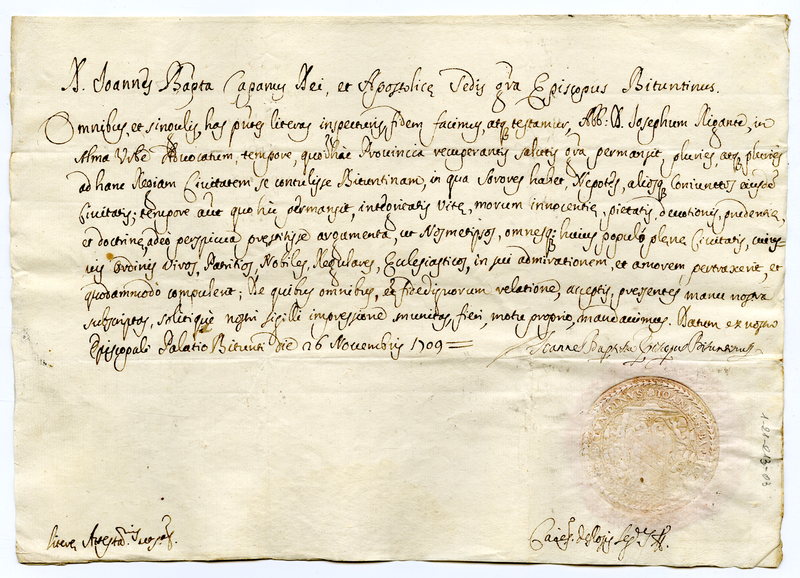 N. Joannes Bapta Capanus Dei, et Apostolicę Sedis gra Episcopus Bituntinus.
Omnibus, et singulis, has pntes literas inspecturis, fidem facimus, atq; testamur, Abb: D. Josephum Rigante, in
Alma Urbe Advocatum, tempore, quo in hac Provincia recuperantis salutis gra permansit, pluries, atq; pluries
ad hanc Regiam Civitatem se contulisse Bituntinam, in qua Sorores habet, Nepotes, aliosq; Coniunctos eiusdē
Civitatis; tempore aut quo hic permansit, integritatis vitę, morum innocentię, pietatis, devotionis, prudentię,
et doctrinę, adeo perspicua prestitisse argumenta, ut Nosmetipsos, omnesq; huius populo plenę Civitatis, cuius
vis Ordinis Viros, Patritios, Nobiles, Regulares, Ecclesiasticos, in sui admirationem, et amorem pertraxerit, et
quodammodo compulerit; De quibus omnibus, ex fidedignorum relatione, acceptis, presentes manu nostra
subscriptas, solitique nostri sigilli impressione munitas, fieri, motu proprio, mandavimus. Datum ex nostro
Episcopali Palatio Bitunti die 26 Novembris 1709 =
Joannes Baptista Episcopus Bituntinus
1-21-013-03
literę